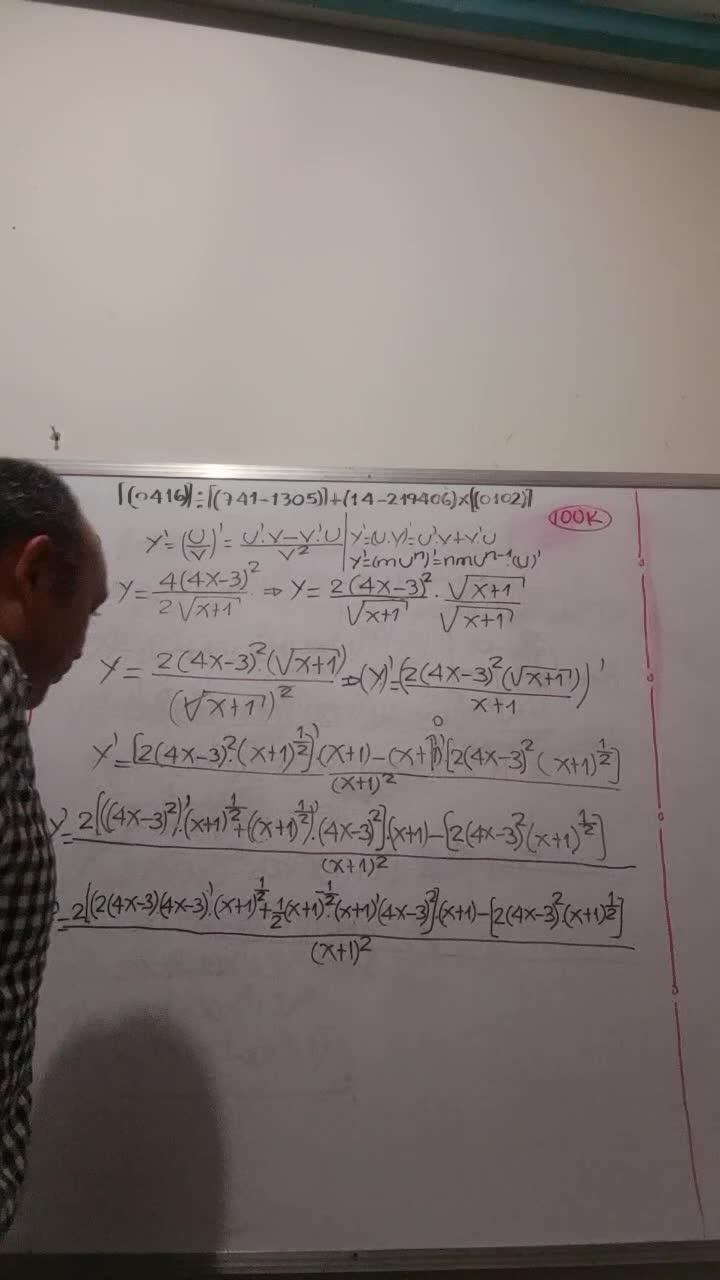 ⌈(0416)⌉=⌈(741-1305)⌉+(14-219406)x⌈(0102)⌉
100K
y'=(u/v)'=(u'.v-v'.u)/v² | y'=(u.v)'=u'.v+v'.u
y'=(m uⁿ)'=nmuⁿ⁻¹(u)'
y=4(4x-3)²/(2√(x+1)) ⇒ y=2(4x-3)²/√(x+1) . √(x+1)/√(x+1)
y=2(4x-3)².(√(x+1))/(√(x+1))² ⇒(y)'=(2(4x-3)²(√(x+1))/(x+1))'
0
y'=[2(4x-3)².(x+1)^(1/2)]'.(x+1)-(x+1)'.[2(4x-3)²(x+1)^(1/2)]/(x+1)²
y'=2[((4x-3)²)'.(x+1)^(1/2)+((x+1)^(1/2))'.(4x-3)²].(x+1)-[2(4x-3)²(x+1)^(1/2)]/(x+1)²
=2[(2(4x-3)(4x-3)'.(x+1)^(1/2)+1/2(x+1)^(-1/2).(x+1)'(4x-3)²].(x+1)-[2(4x-3)².(x+1)^(1/2)]/(x+1)²